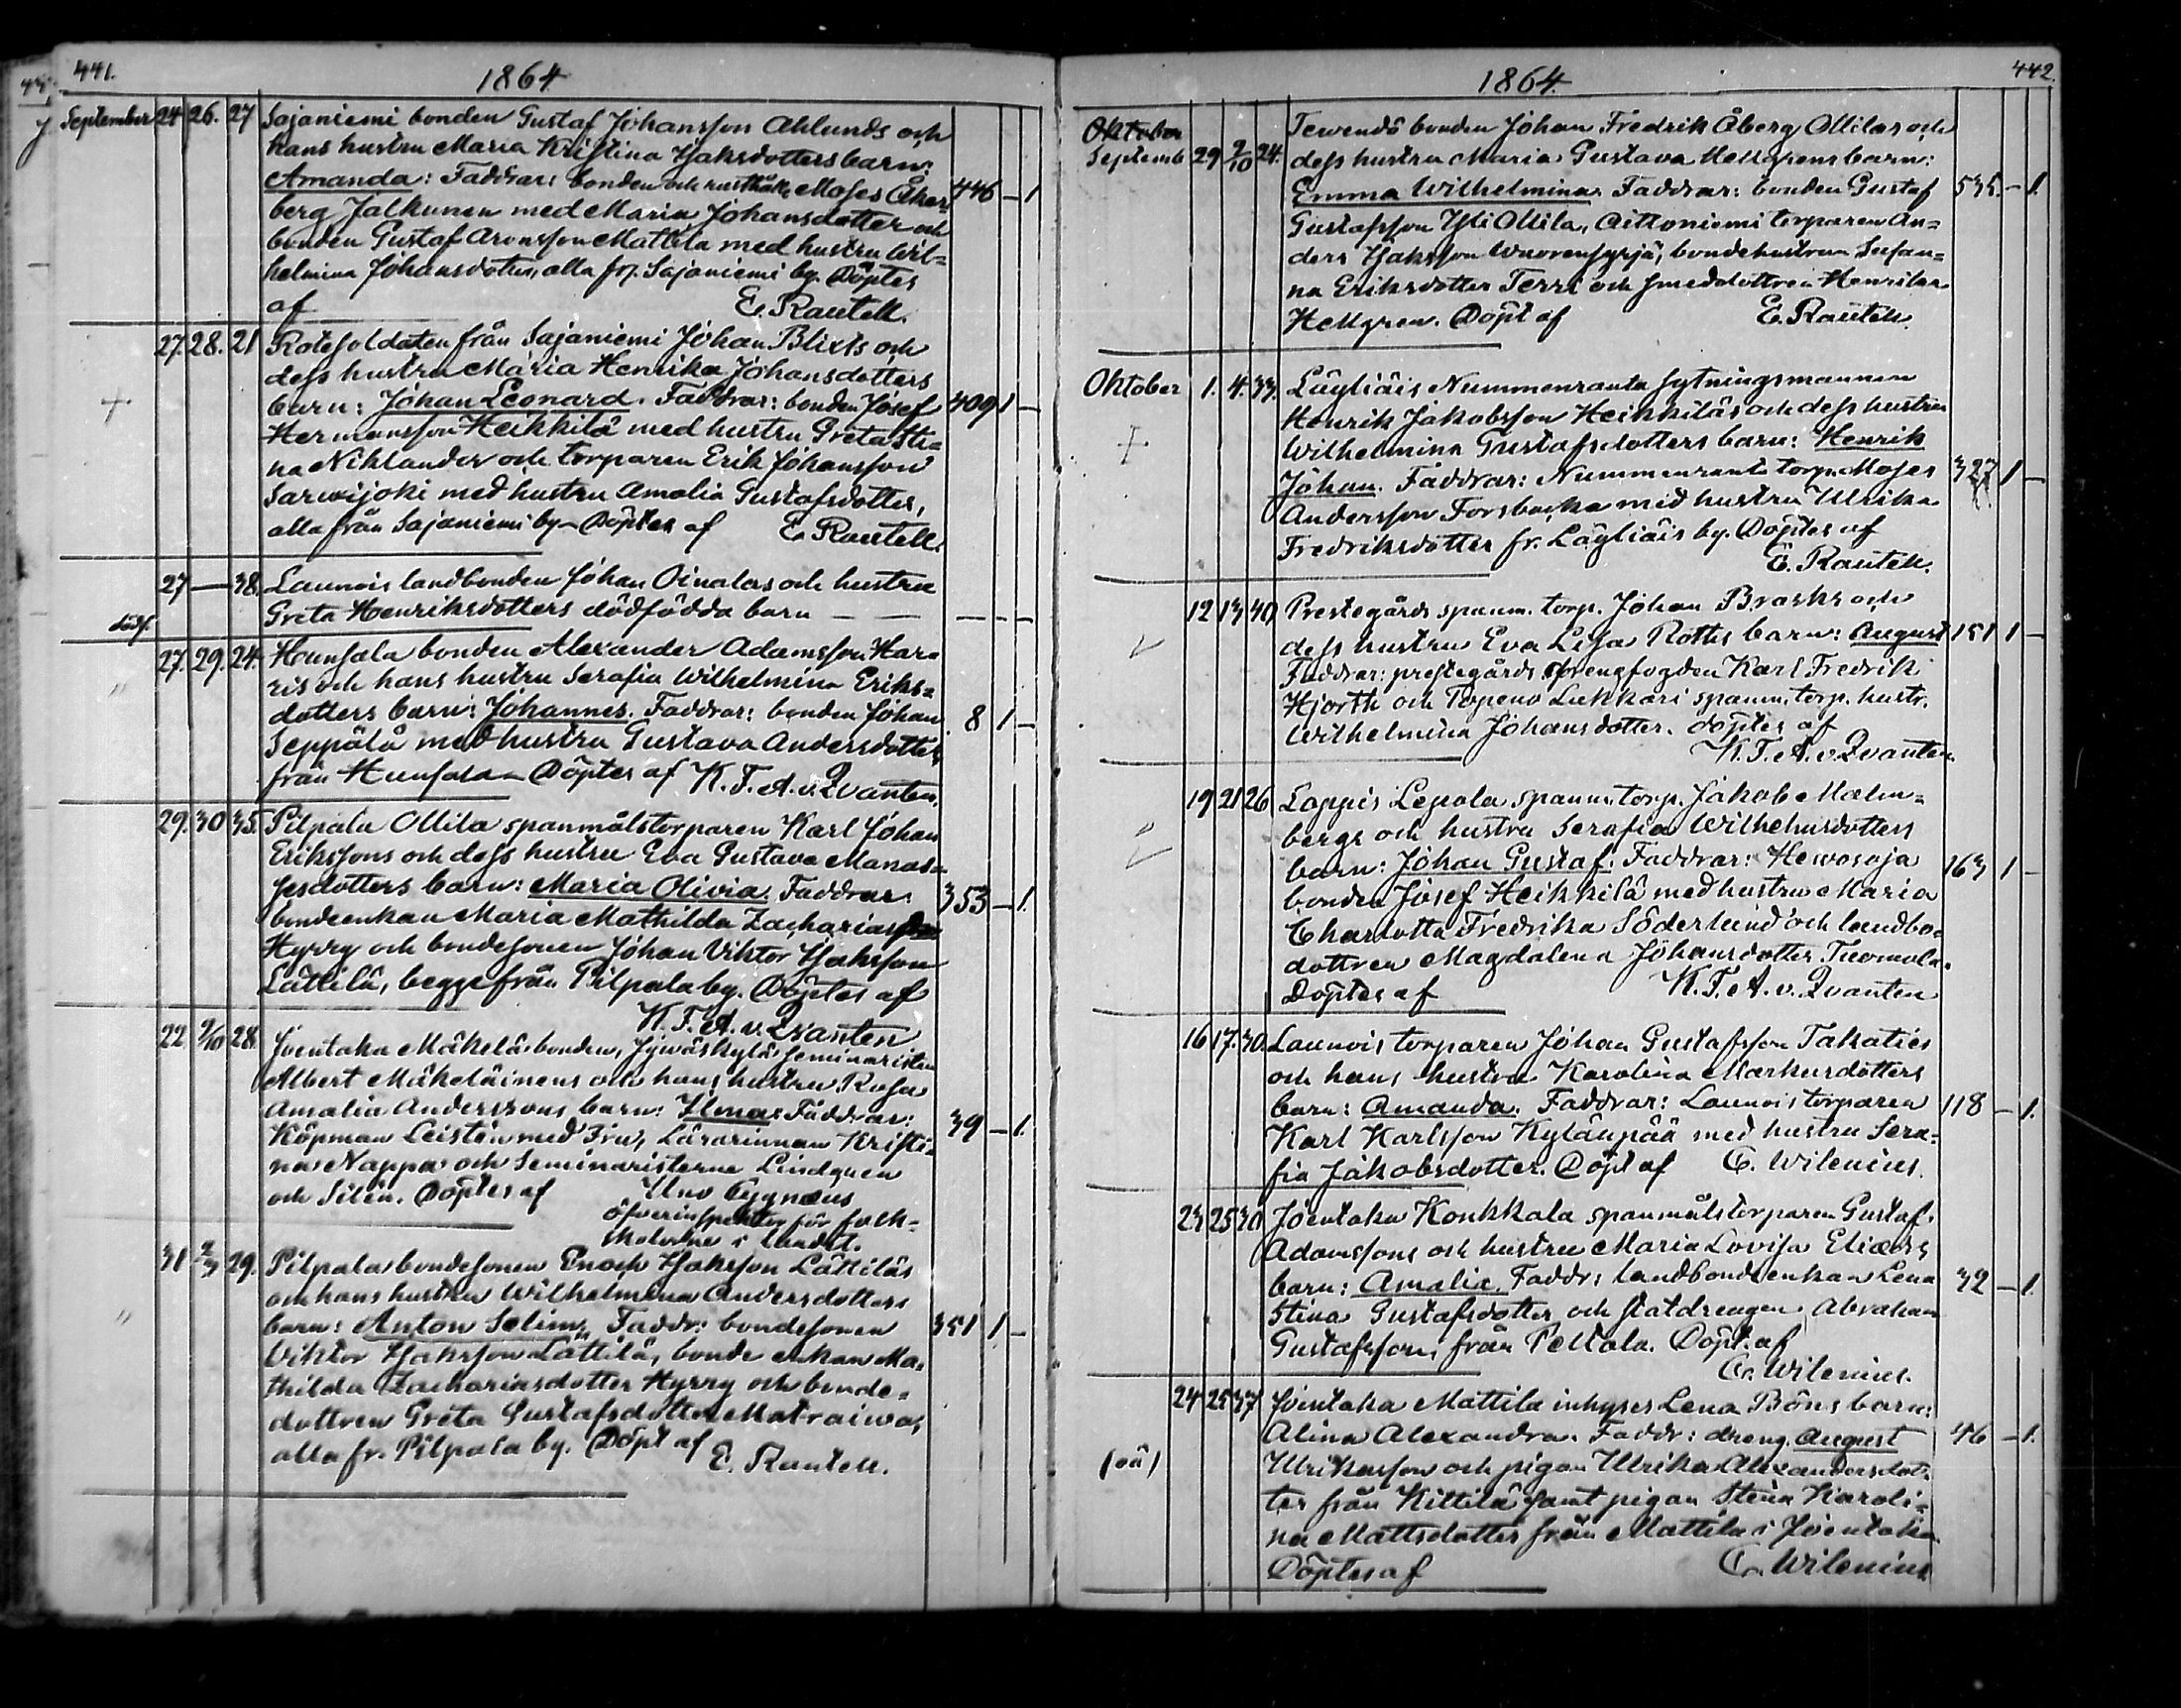 441.
1864
September 24 26. 27 Sajaniemi bonden Gustaf Johansson Ahlunds och
hans hustru Maria Kristina Isaksdotters barn:
Amanda: Faddrar: bonden och rusthåll. Moses Åker= 446 — 1
berg Jalkunen med Maria Johansdotter och
bonden Gustaf Aronsson Mattila med hustru Wil=
helmina Johansdotter, alla fr. Sajaniemi by. Döptes
af E. Rautell.
27. 28. 21 Rotesoldaten från Sajaniemi Johan Blixts och
dess hustru Maria Henrika Johansdotters
barn: Johan Leonard. Faddrar: bonden Josef 409 1 —
Hermansson Heikkilä med hustru Greta Sti=
na Niklander och torparen Erik Johansson
Sarwijoki med hustru Amalia Gustafsdotter,
alla från Sajaniemi by. Döptes af E. Rautell.
27 — 38. Launois landbonden Johan Oinalas och hustru
dödf. Greta Henriksdotters dödfödda barn — — — — —
27. 29. 24 Hunsala bonden Alexander Adamsson Har=
ris och hans hustru Serafia Wilhelmina Eriks=
dotters barn: Johannes. Faddrar: bonden Johan 8 1 —
Seppälä med hustru Gustava Andersdotter
från Hunsala. Döptes af K. F. A. v. Qvanten.
29. 30 35. Pilpala Ollila spanmålstorparen Karl Johan
Erikssons och dess hustru Eva Gustava Manas=
sesdotters barn: Maria Olivia. Faddrar: 353 — 1.
bondeenkan Maria Mathilda Zacharias
Hyrry och bondesonen Johan Viktor Isaksson
Lättilä, begge från Pilpala by. Döptes af
K. F. A. v. Qvanten
22 2/10 28. Joentaka Mäkelä bonden, Jywäskylä seminaristen
Albert Mäkeläinens och hans hustru Rosa
Amalia Anderssons barn: Ilma: Faddrar: 39 — 1.
Köpman Leistén med Fru, Lärarinnan Kristi=
na Nappa och Seminaristerne Lindqven
och Silén. Döptes af Uno Cygnæus
öfverinspektor för folk=
skolorne i landet.
31 2/3 29. Pilpala bondesonen Enoch Isaksson Lättiläs
och hans hustru Wilhelmina Andersdotters
barn: Anton Selim. Faddr: bondesonen 351 1 —
Viktor Isaksson Lättilä, bonde enkan Ma=
thilda Zachariasdotter Hyrry och bonde=
dottren Greta Gustafsdotter Matraiwa,
alla fr. Pilpala by. Döpt af E. Rautell.
442.
1864.
Oktober
Septemb 29 2/10 24. Tewendö bonden Johan Fredrik Åberg Ollilas och
dess hustru Maria Gustava Hellgrens barn:
Emma Wilhelmina. Faddrar: bonden Gustaf 535. — 1.
Gustafsson Yli Ollila, Aittoniemi torparen An=
ders Isaksson Wuorensyrjä, bondehustrun Susan=
na Eriksdotter Terri och smeddottren Henrika
Hellgren. Döpt af E. Rautell.
Oktober 1. 4. 33. Läyliäis Nummenranta sytningsmannen
Henrik Jakobsson Heikkiläs och dess hustru
Wilhelmina Gustafsdotters barn: Henrik
Johan. Faddrar: Nummenranta torp. Moses 327 1 —
Andersson Forsbacka med hustru Ulrika
Fredriksdotter fr. Läyliäis by. Döptes af
E. Rautell.
12 13 40 Prestegårds spanm. torp. Johan Brasks och
dess hustru Eva Lisa Rotts barn: August 151 1 —
Faddrar: prestegårds drengfogden Karl Fredrik
Hjorth och Topeno Lukkari spanm. torp. hustr.
Wilhelmina Johansdotter. döptes af
K. F. A. v. Qvanten.
19 21 26 Loppis Lepola spanm. torp. Jakob Malm=
bergs och hustru Serafia Wilhelmsdotters
barn: Johan Gustaf. Faddrar: Hewosoja 163 1 —
bonden Josef Heikkilä med hustru Maria
Charlotta Fredrika Söderlund och landbo=
dottren Magdalena Johansdotter Tuomola.
Döptes af K. F. A. v. Qvanten
16 17. 30. Launois torparen Johan Gustafsson Takaties
och hans hustru Karolina Markusdotters
barn: Amanda. Faddrar: Launois torparen 118 — 1.
Karl Karlsson Kylänpää med hustru Sera=
fia Jakobsdotter. Döpt af C. Wilenius.
23 25 30 Joentaka Konkkala spanmålstorparen Gustaf
Adamssons och hustru Maria Lovisa Eliæ drs
barn: Amalia. Faddr: landbondeenkan Lena 32 — 1.
Stina Gustafsdotter och statdrengen Abraham
Gustafsson, från Peltola. Döpt af
C. Wilenius.
24 25 37 Joentaka Mattila inhyses Lena Böns barn:
Alina Alexandra. Faddr: dreng. August 46 — 1.
(oä) Ulriksson och pigan Ulrika Alexandersdot=
ter från Kittilä samt pigan Stina Karoli=
na Mattsdotter från Mattila i Joentaka
Döptes af C. Wilenius